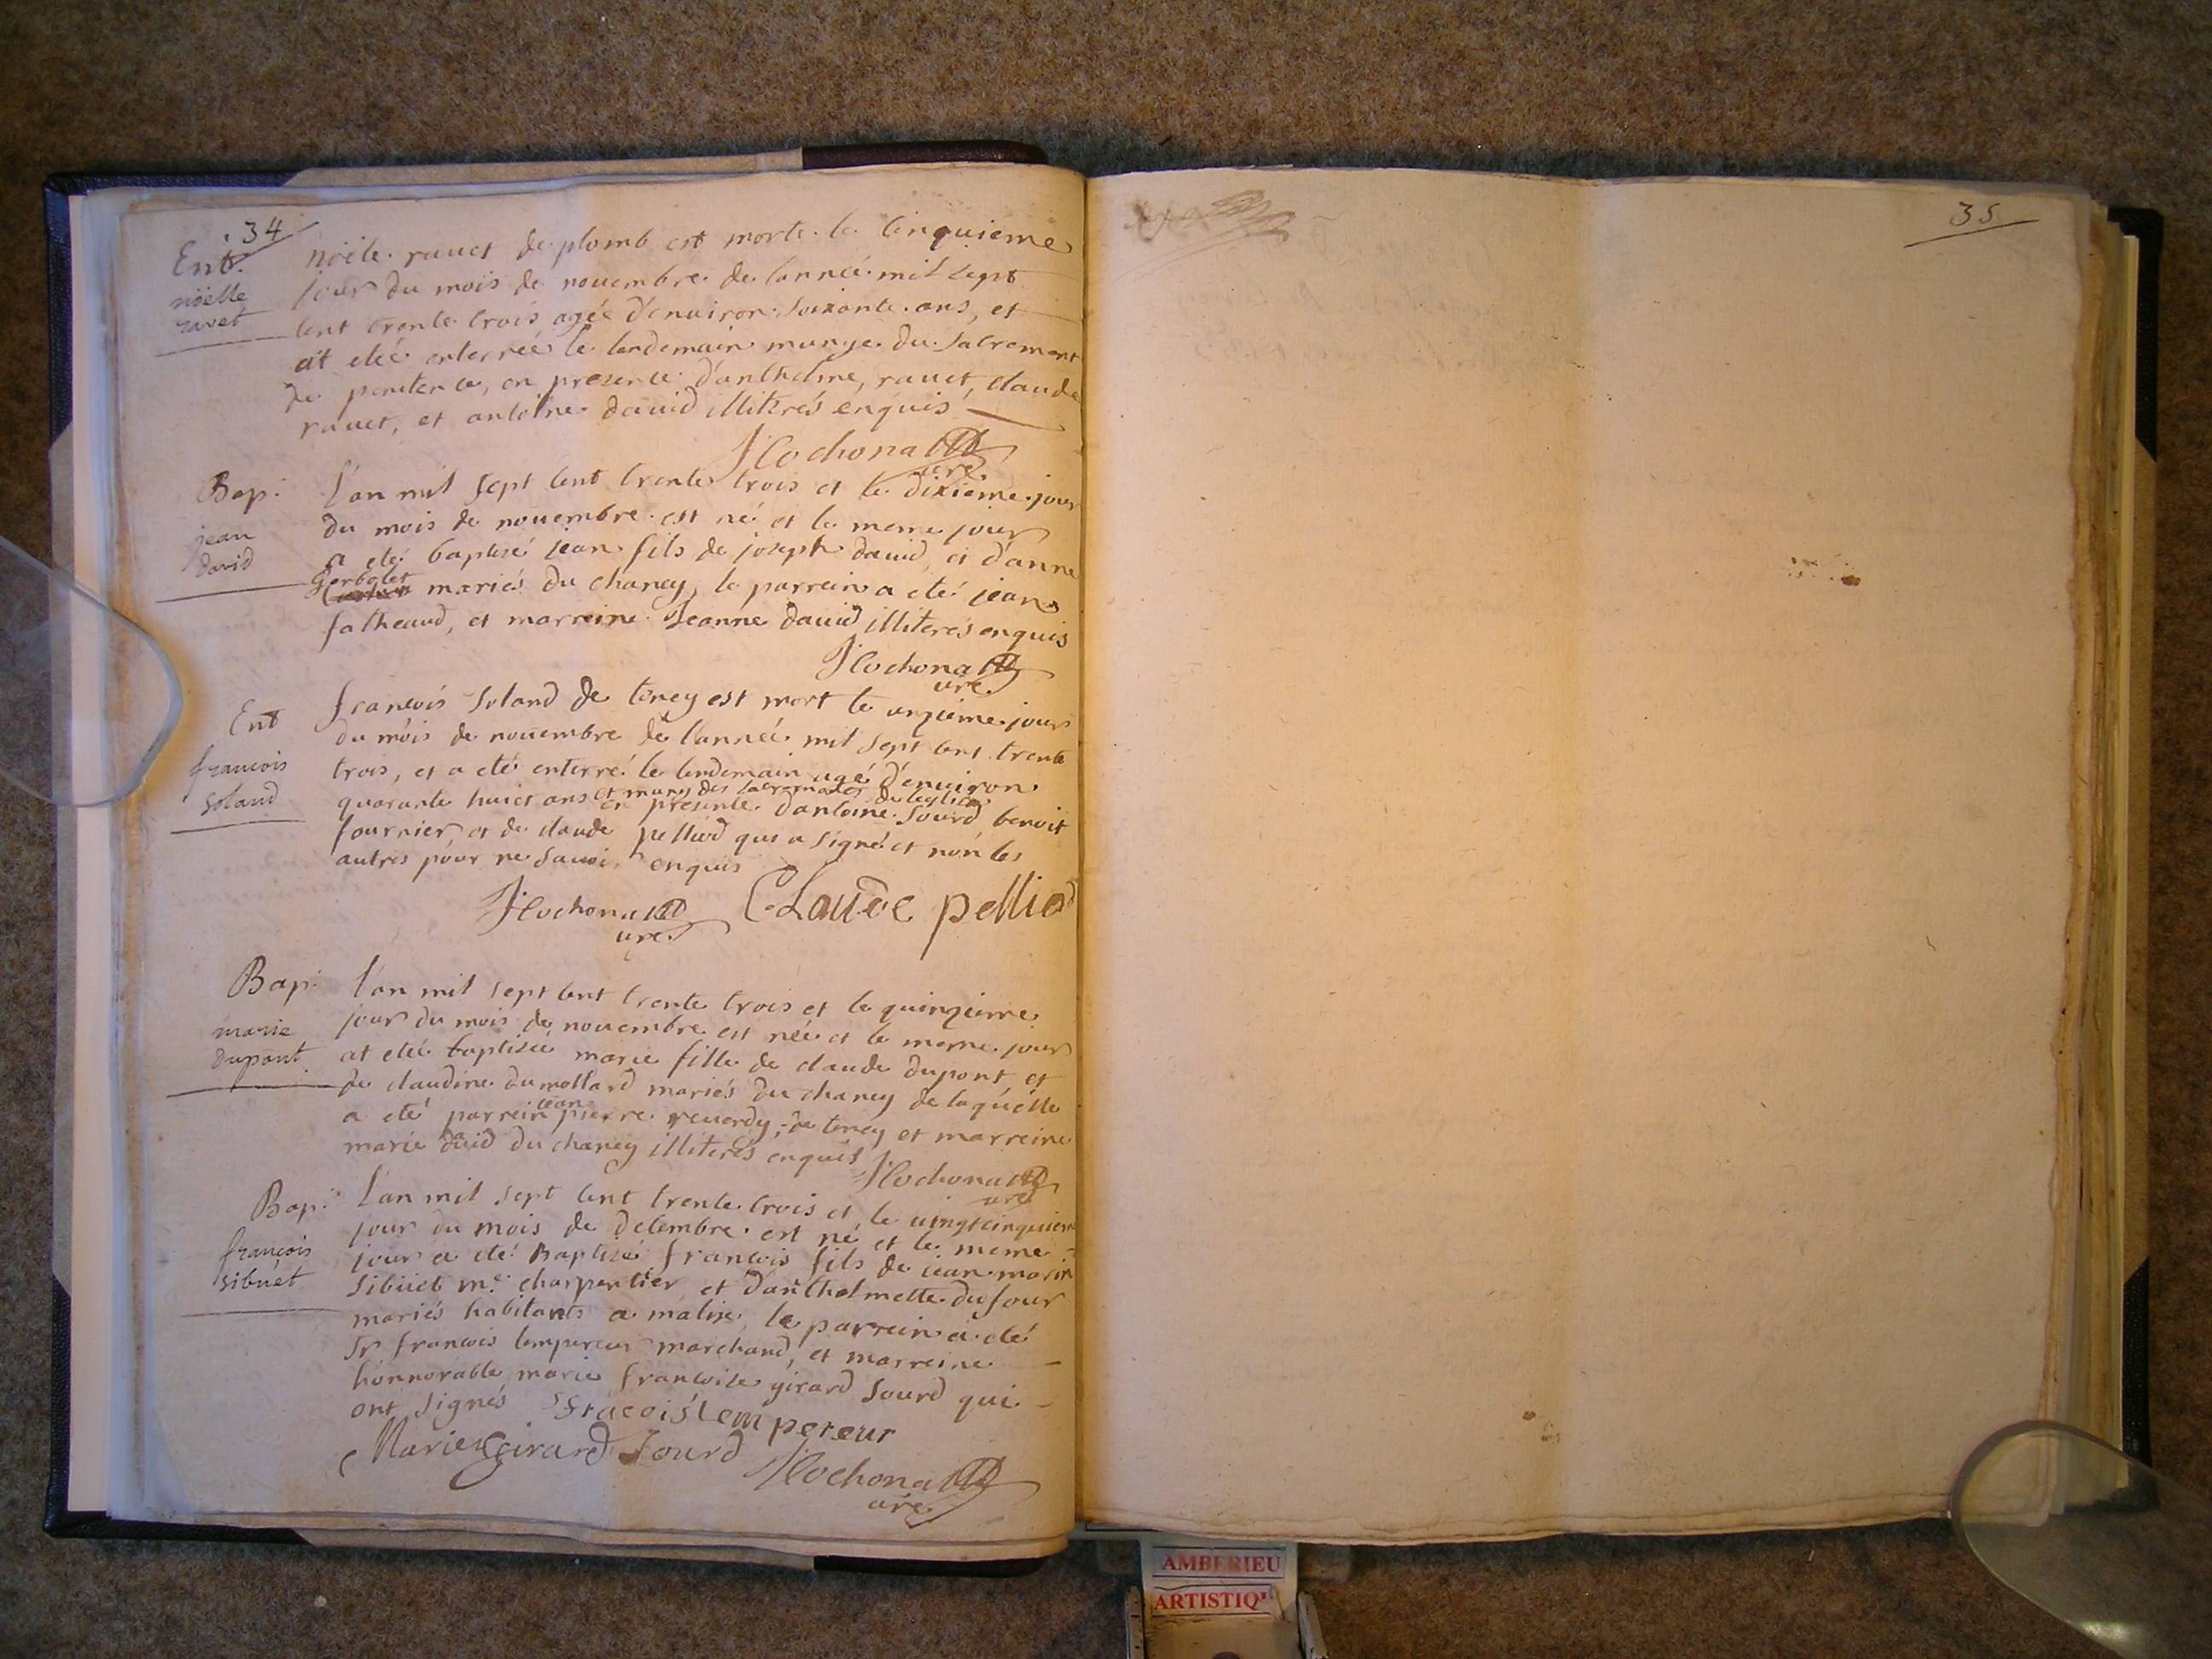 34
Ent.
nöelle
ravet
nöele rauet de plomb est morte le cinquieme
jour du mois de nouembre de lanneé mil sept
cent trente trois ageé d'enuiron soixante ans, et
at eteé enterreé le lendemain munye du sacrement
de penitence, en presence d'anthelme, rauet, claude
rauet, et antoine dauid illiterés enquis
J Cochonat
curé
Bap.
jean
david
L'an mil sept cent trente trois et le dixieme jour
du mois de nouembre est né et le meme jour
a eté baptisé jean fils de joseph dauid, et d'anne
Gerbolet mariés du chaney, le parrein a eté jean
falheaud, et marreine Jeanne dauid illiterés enquis
J Cochonat
curé
Ent
francois
soland
francois soland de toney est mort le onzieme jour
du mois de nouembre de l'anneé mil sept cent trente
trois, et a eté enterré le lendemain agé d'enuiron
quarante huict ans et muny des sacrements de leglise
en presence dantoine sourd benoit
fournier, et de claude pelliod qui a signé et non les
autres pour ne sauoir enquis
J Cochonat
curé
Claude pelliod
Bap.
marie
dupont
L'an mil sept cent trente trois et le quinzieme
jour du mois de nouembre est neé et le meme jour
at eteé baptiseé marie fille de claude dupont, et
de claudine dumollard mariés du chaney de laquelle
a eté parrein jean pierre reuerdy, de toney et marreine
marie dauid du chaney illiterés enquis
J Cochonat
curé
Bap.
francois
sibuet
L'an mil sept cent trente trois et le uingtcinquieme
jour du mois de decembre est né et le meme
jour a eté Baptisé francois fils de jean marin
sibuet me. charpentier, et danthelmette dufour
mariés habitants a matise, le parrein a eté
Sr francois lempereur marchand, et marreine
honnorable marie francoise girard sourd qui
ont signés
fracois lempereur
Marie Girard Sourd
J Cochonat
curé
35
AMBERIEU
ARTISTIQ